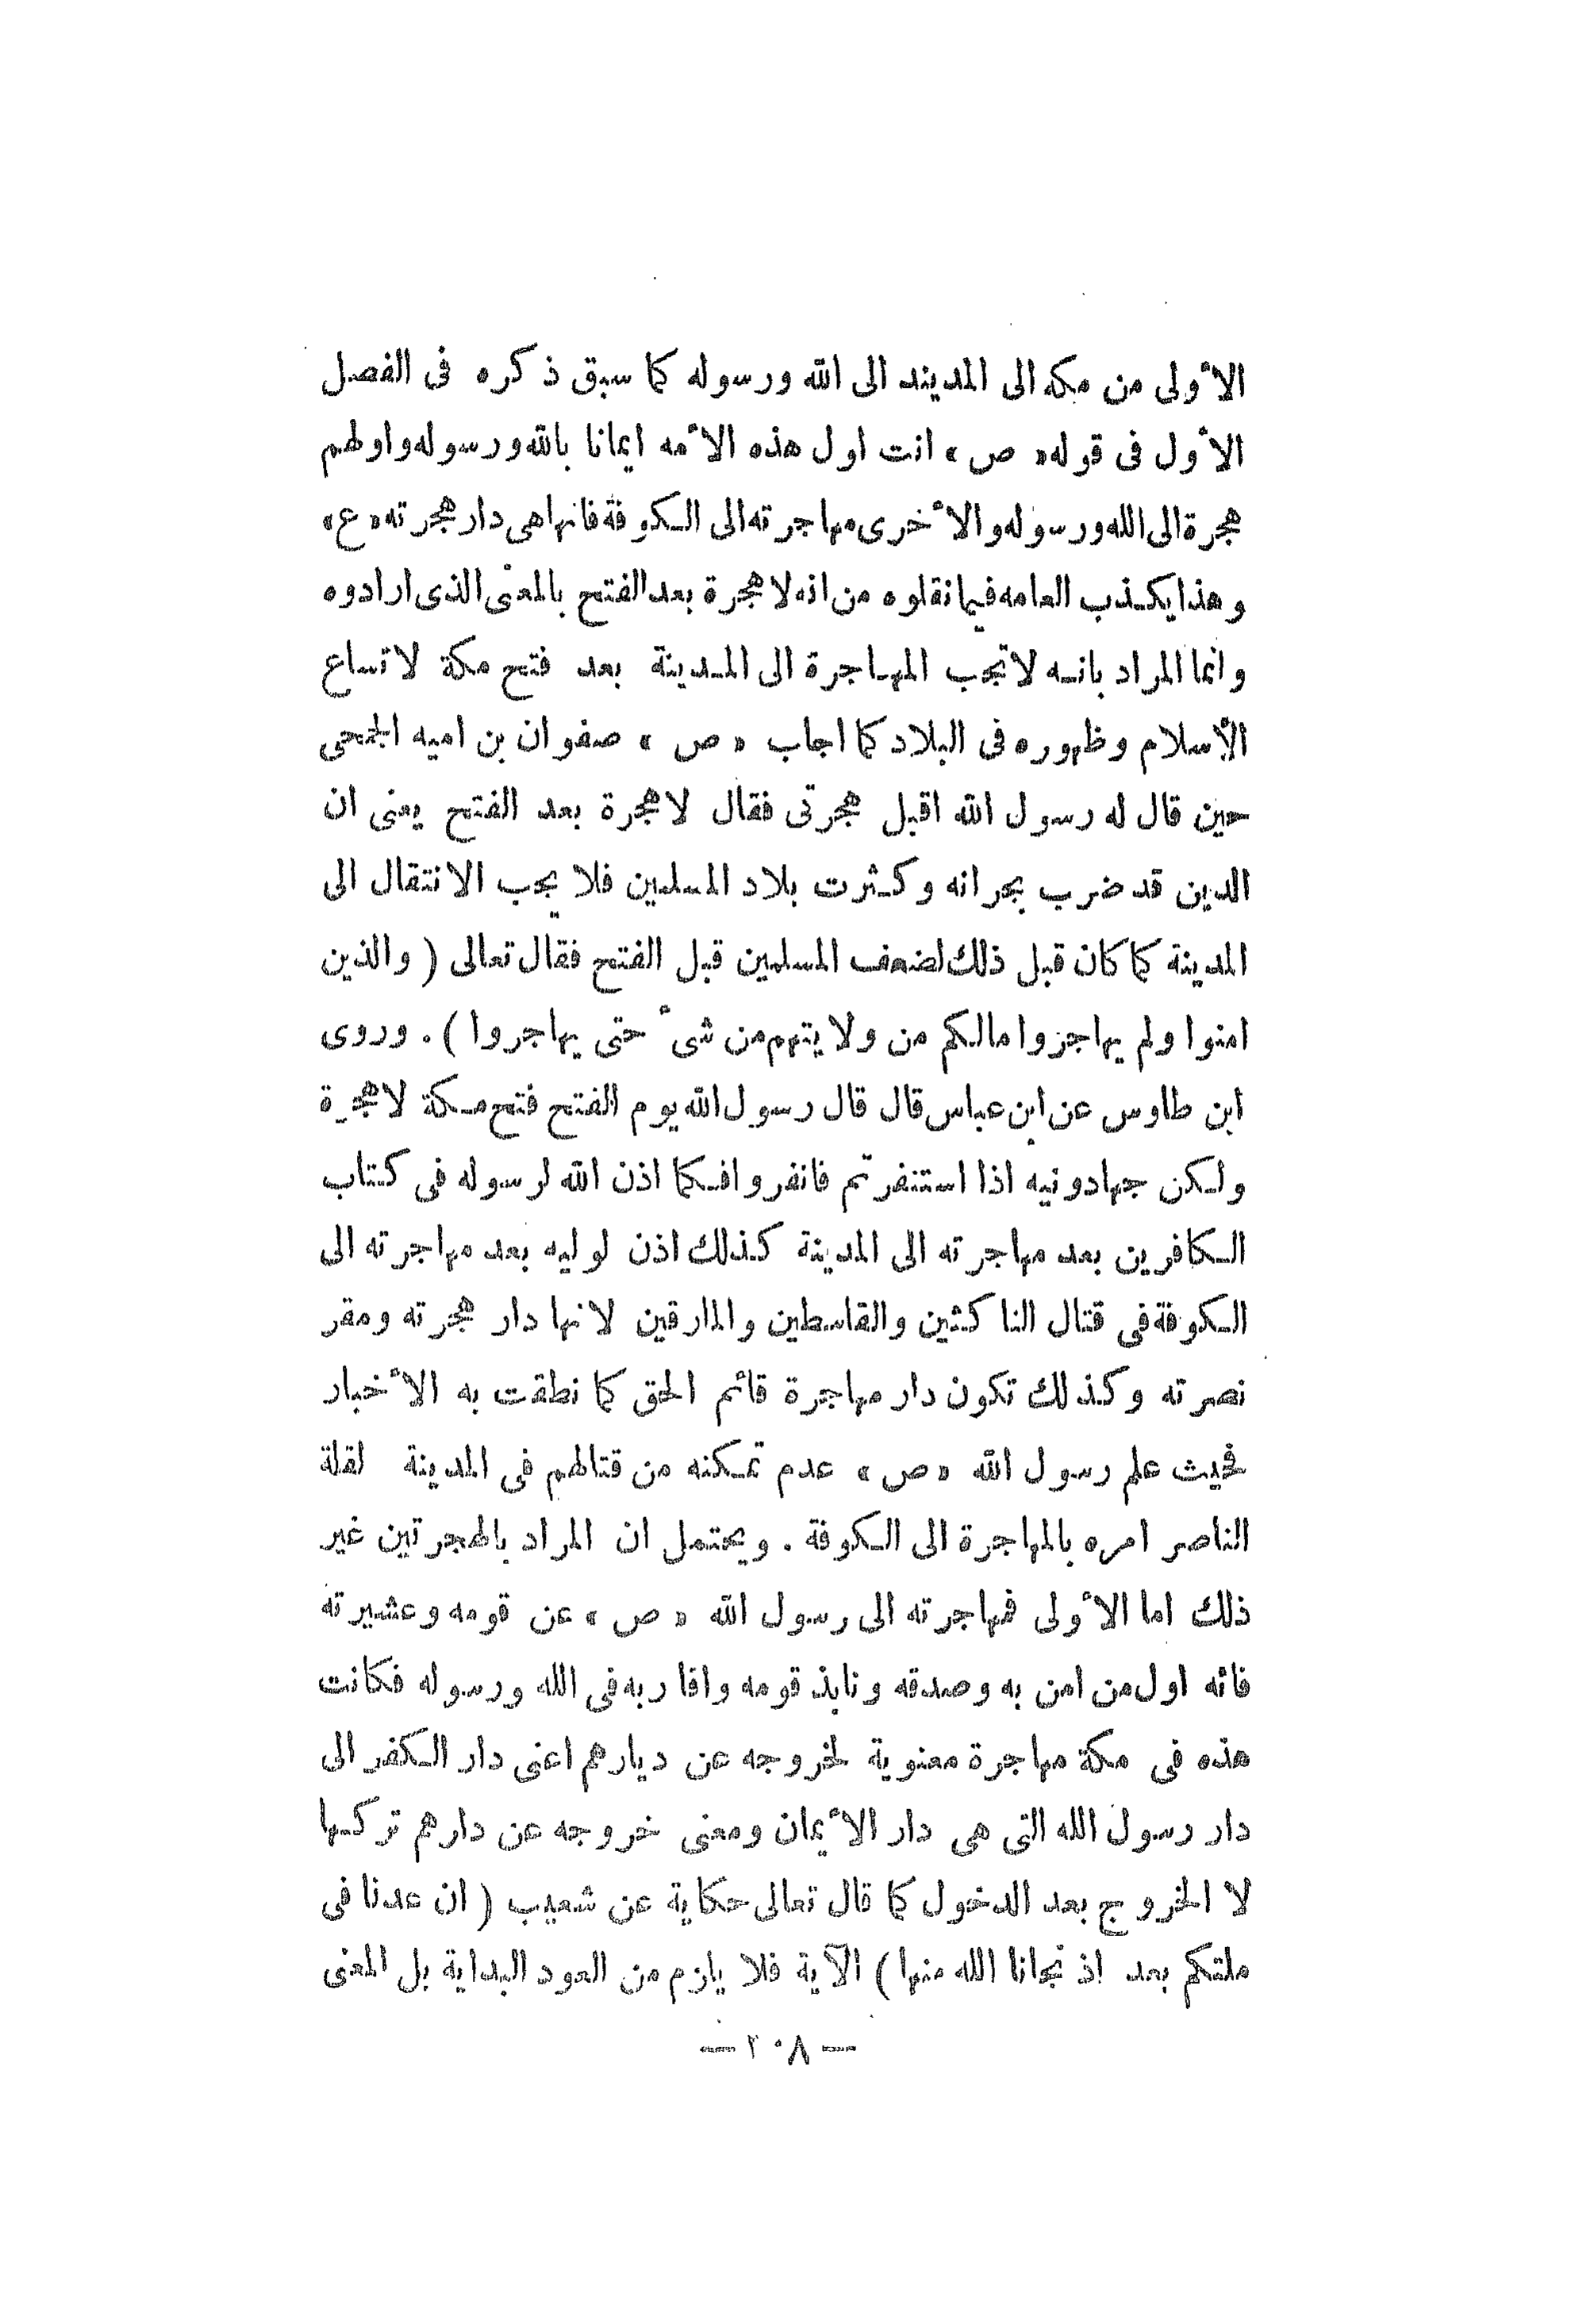 الأولى من مكه الى المدينه الى الله ورسوله كما سبق ذكره فى الفصل
الأول فى قوله « ص » انت اول هذه الأمه ايمانا بالله ورسوله واولهم
هجرة الى الله ورسوله والأخرى مهاجرته الى الكوفة فانها هى دار هجرته « ع »
وهذا يكذب العامه فيما نقلوه من انه لا هجرة بعد الفتح بالمعنى الذى ارادوه
وانما المراد بانه لا تجب المهاجرة الى المدينة بعد فتح مكة لا تساع
الأسلام وظهوره فى البلاد كما اجاب « ص » صفوان بن اميه الجمحى
حين قال له رسول الله اقبل هجرتى فقال لا هجرة بعد الفتح يعنى ان
الدين قد ضرب بجرانه وكثرت بلاد المسلمين فلا يجب الانتقال الى
المدينة كما كان قبل ذلك لضعف المسلمين قبل الفتح فقال تعالى ( والذين
امنوا ولم يهاجروا مالكم من ولا يتهم من شىء حتى يهاجروا ) . وروى
ابن طاوس عن ابن عباس قال قال رسول الله يوم الفتح فتح مكة لا هجرة
ولكن جهاد ونيه اذا استنفرتم فانفروا فكما اذن الله لرسوله فى كتاب
الكافرين بعد مهاجرته الى المدينة كذلك اذن لوليه بعد مهاجرته الى
الكوفة فى قتال الناكثين والقاسطين والمارقين لانها دار هجرته ومقر
نصرته وكذلك تكون دار مهاجرة قائم الحق كما نطقت به الأخبار
فحيث علم رسول الله « ص » عدم تمكنه من قتالهم فى المدينة لقلة
الناصر امره بالمهاجرة الى الكوفة . ويحتمل ان المراد بالهجرتين غير
ذلك اما الأولى فمهاجرته الى رسول الله « ص » عن قومه وعشيرته
فانه اول من امن به وصدقه ونابذ قومه واقاربه فى الله ورسوله فكانت
هذه فى مكة مهاجرة معنوية لخروجه عن ديارهم اعنى دار الكفر الى
دار رسول الله التى هى دار الأيمان ومعنى خروجه عن دارهم تركها
لا الخروج بعد الدخول كما قال تعالى حكاية عن شعيب ( ان عدنا فى
ملتكم بعد اذ نجانا الله منها ) الآية فلا يلزم من العود البداية بل المعنى
— ٢٠٨ —